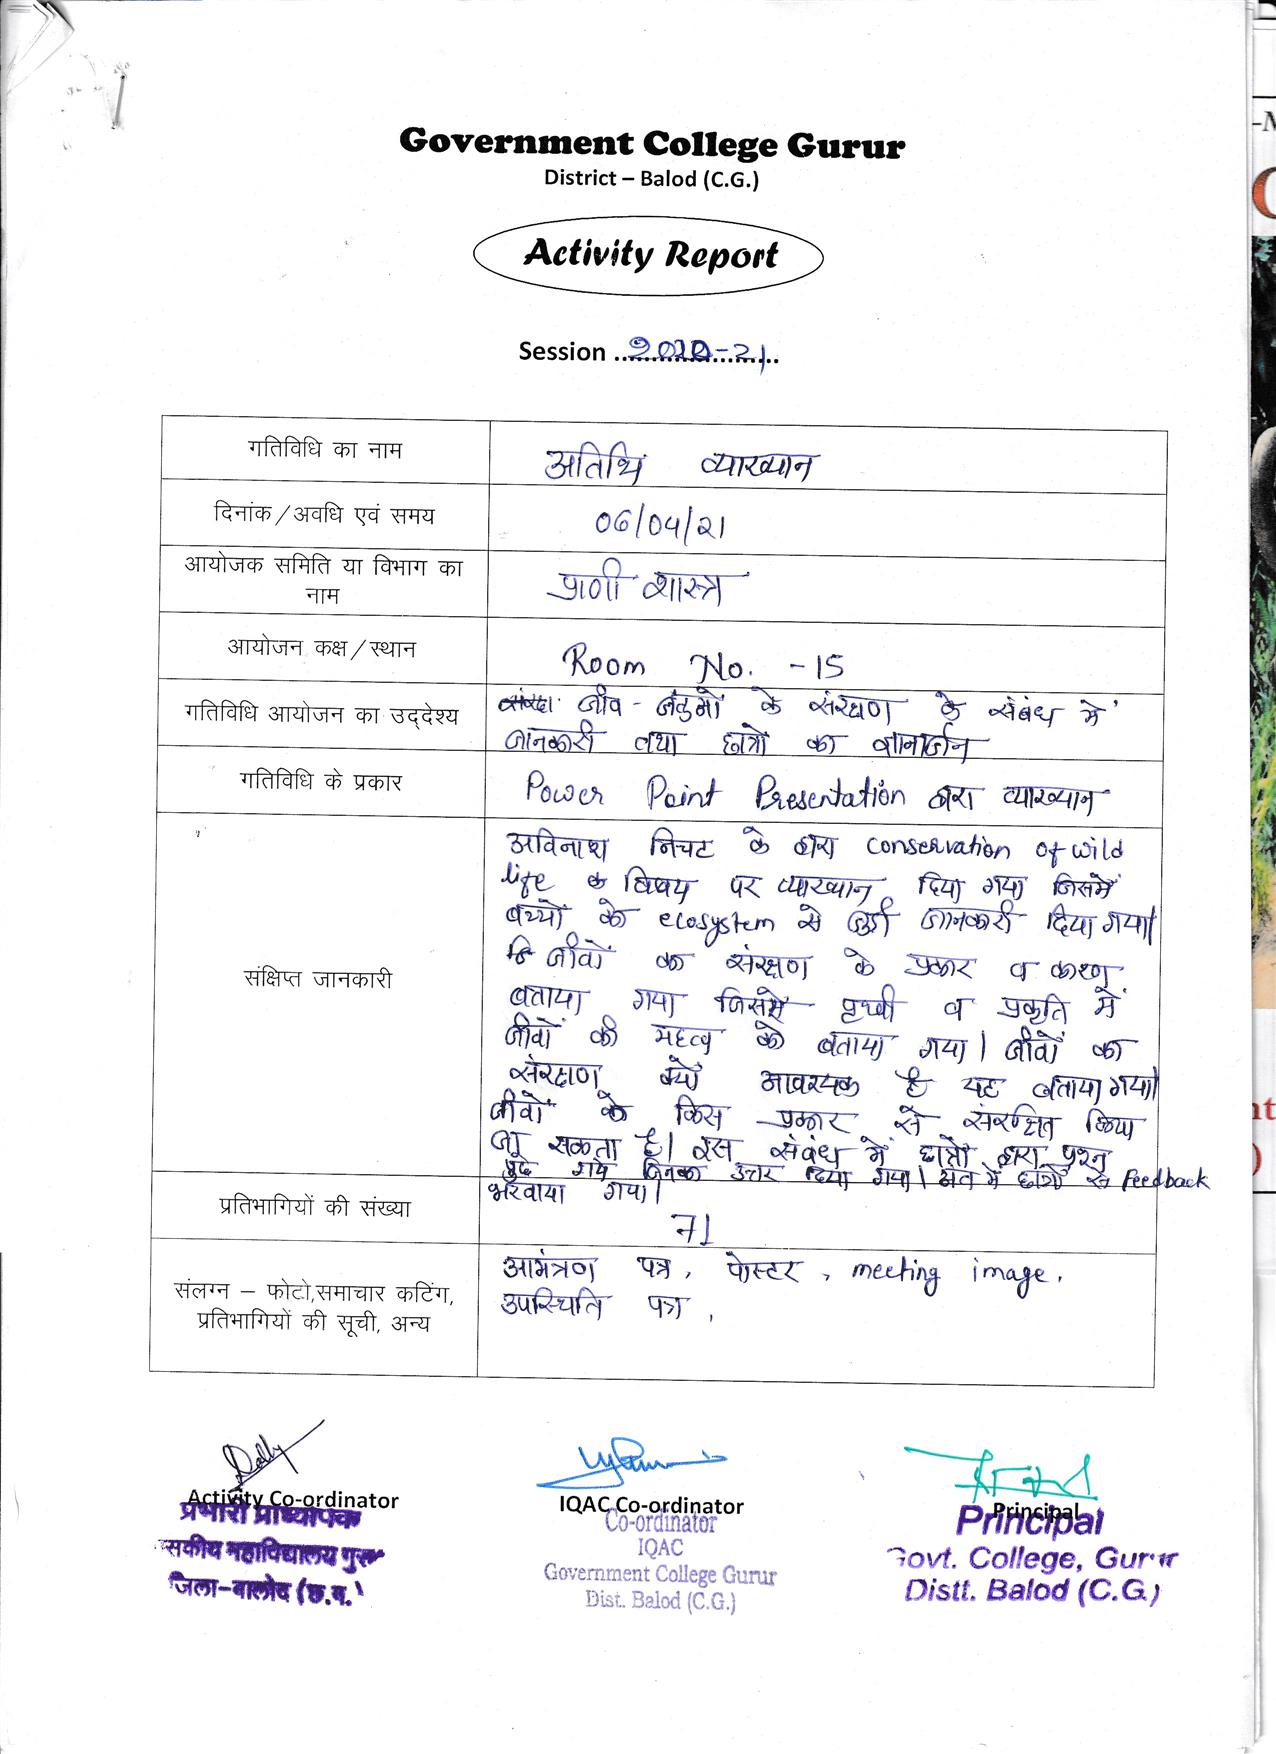 Government College Gurur
District – Balod (C.G.)
Activity Report
Session ..2020-21..
गतिविधि का नाम
अतिथि व्याख्यान
दिनांक/अवधि एवं समय
06/04/21
आयोजक समिति या विभाग का
नाम
प्राणी शास्त्र
आयोजन कक्ष/स्थान
Room No. -15
गतिविधि आयोजन का उद्देश्य
जीव - जंतुओं के संरक्षण के संबंध में
जानकारी तथा छात्रों का ज्ञानार्जन
गतिविधि के प्रकार
Power Point Presentation द्वारा व्याख्यान
संक्षिप्त जानकारी
अविनाश के द्वारा conservation of wild
life के विषय पर व्याख्यान दिया गया जिसमें
बच्चों को ecosystem से जुड़ी जानकारी दिया गया।
जीवों का संरक्षण के प्रकार व कारण
बताया गया जिसमें पृथ्वी व प्रकृति में
जीवों की महत्व को बताया गया। जीवों का
संरक्षण क्यों आवश्यक है यह बताया गया।
जीवों को किस प्रकार से संरक्षित किया
जा सकता है। इस संबंध में छात्रों द्वारा प्रश्न
पुछे गये जिनका उत्तर दिया गया। अंत में छात्रों से feedback
भरवाया गया।
प्रतिभागियों की संख्या
71
संलग्न – फोटो,समाचार कटिंग,
प्रतिभागियों की सूची, अन्य
आमंत्रण पत्र, पोस्टर, meeting image.
उपस्थिति पत्र,
Activity Co-ordinator
प्रभारी प्राध्यापक
सकीय महाविद्यालय गुरुर
जिला-बालोद (छ.ग.)
IQAC Co-ordinator
Co-ordinator
IQAC
Government College Gurur
Dist. Balod (C.G.)
Principal
Principal
Govt. College, Gurur
Distt. Balod (C.G.)